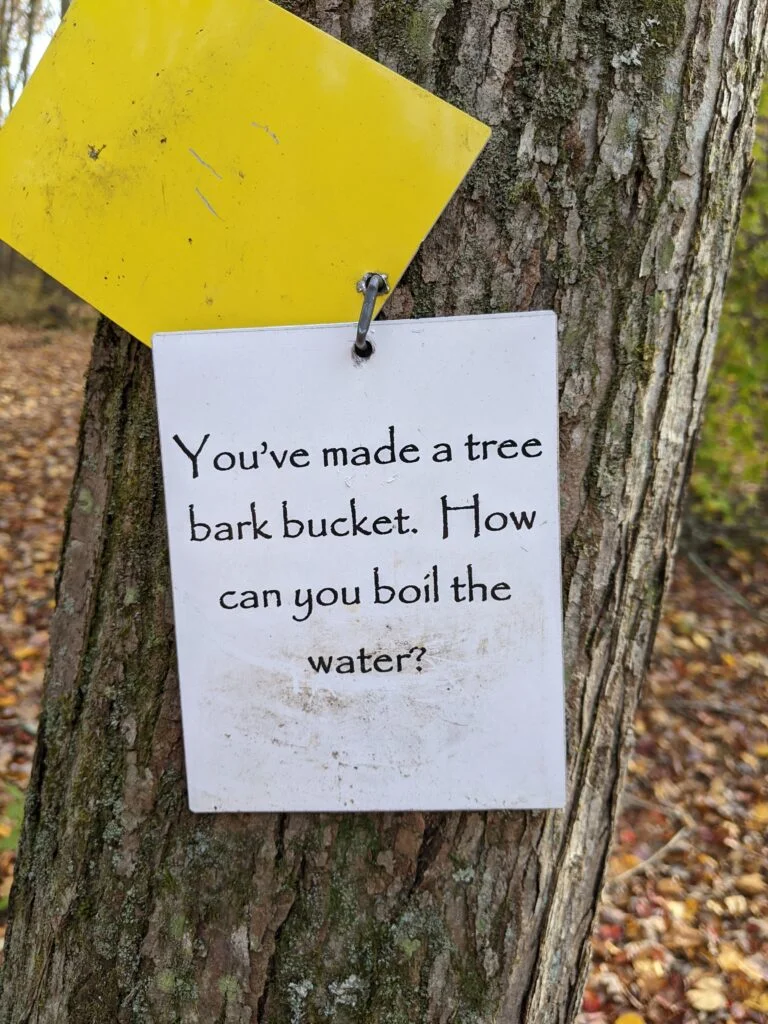 You've made a tree
bark bucket. How
can you boil the
water?